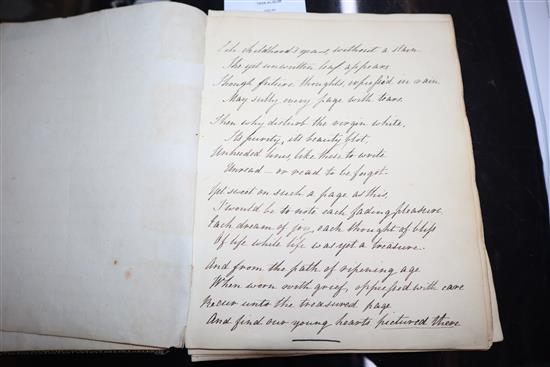 Like childhood's years, without a stain
The yet unwritten leaf appears
Though future thoughts, express'd in vain
May sully every page with tears.
Then why disturb the virgin white,
Its purity, its beauty blot,
Unheeded lines, like these to write
Unread – or read to be forgot.
Yet sweet on such a page as this,
T'would be to note each fading pleasure
Each dream of joy, each thought of bliss
Of life while life was yet a treasure.
And from the path of ripening age
When worn with grief, oppressed with care
Recur unto the treasured page
And find our young hearts pictured there